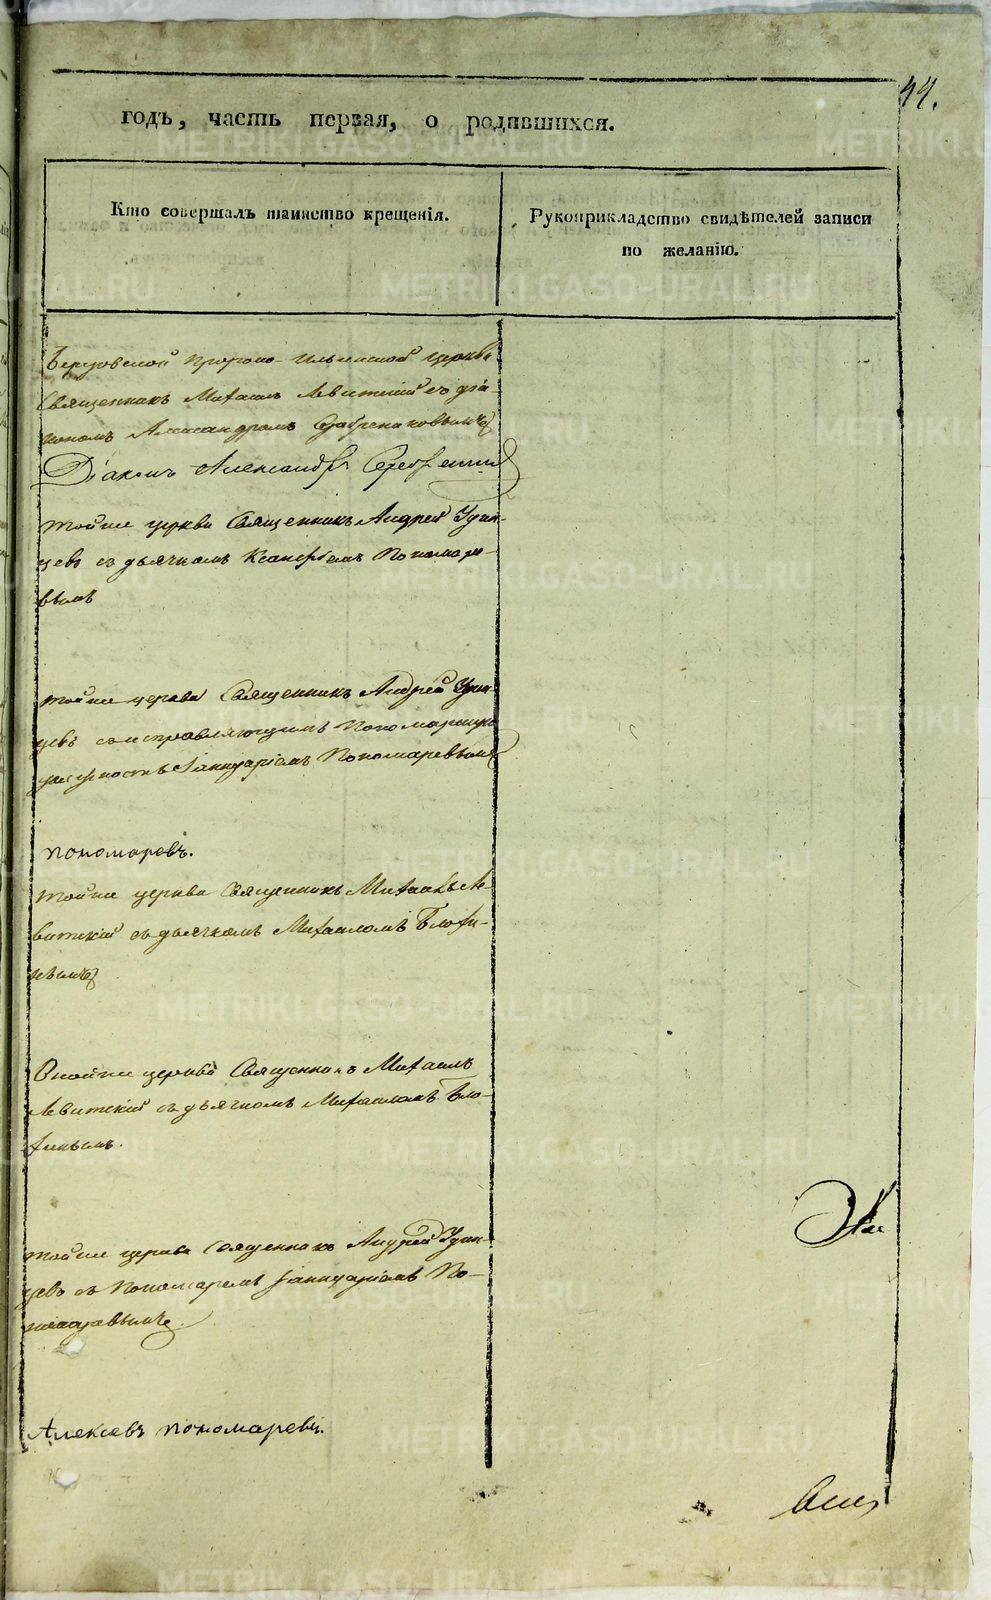 44.
годъ, часть первая, о родившихся.
Кто совершалъ таинство крещенія.
Рукоприкладство свидѣтелей записи
по желанію.
Пророко-Ильинской церкви
Священникъ Михаилъ Левитскій съ діа-
кономъ Александромъ
Діаконъ Александръ
тойже церкви Священникъ Андрей Удин-
цевъ съ дьячкомъ Ксенофонтомъ Пономаре-
вымъ
тойже церкви Священникъ Андрей Удин-
цевъ съ исправляющимъ Пономарскую
должность Іаннуаріемъ Пономаревымъ
Пономаревъ.
тойже церкви Священникъ Михаилъ Ле-
витскій съ дьячкомъ Михаиломъ Блохи-
нымъ
тойже церкви Священникъ Михаилъ
Левитскій съ дьячкомъ Михаиломъ Бло-
хинымъ.
тойже церкви Священникъ Андрей Удин-
цевъ съ Пономаремъ Іаннуаріемъ По-
номаревымъ.
Алексѣевъ Пономаревъ.
METRIKI.GASO-URAL.RU